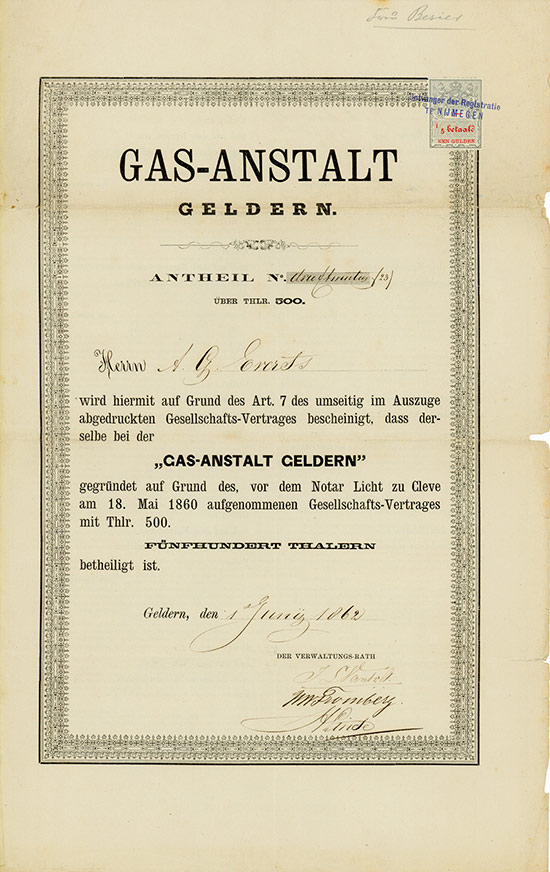 Besier
Ontvanger der Registratie
TE NIJMEGEN
betaald
EEN GULDEN
GAS-ANSTALT
GELDERN.
ANTHEIL No. (23)
ÜBER THLR. 500.
Herrn A. G. Everts
wird hiermit auf Grund des Art. 7 des umseitig im Auszuge
abgedruckten Gesellschafts-Vertrages bescheinigt, dass der-
selbe bei der
„GAS-ANSTALT GELDERN”
gegründet auf Grund des, vor dem Notar Licht zu Cleve
am 18. Mai 1860 aufgenommenen Gesellschafts-Vertrages
mit Thlr. 500.
FÜNFHUNDERT THALERN
betheiligt ist.
Geldern, den 1 Junij 1862
DER VERWALTUNGS-RATH